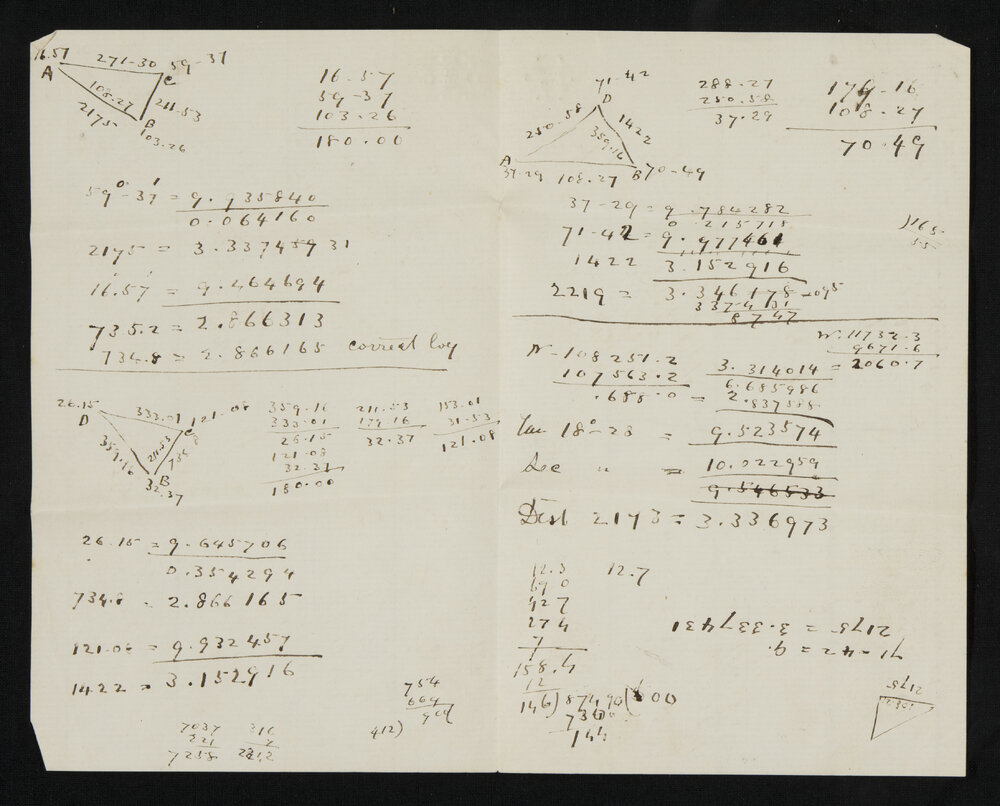 16.57
A
271-30
59-37
C
108.27
2175
211-53
B
103.26
16.57
59-37
103.26
180.00
59°-37' = 9.935840
0.064160
2175 = 3.337459 31
16.57 = 9.464694
735.2 = 2.866313
734.8 = 2.866165 correct log
26.15
D
333.01
121.08
C
359.16
211.53
735
B
32.37
359.16
333.01
26.15
121.08
32.37
180.00
211.53
179.16
32.37
153.01
31.53
121.08
26.15 = 9.645706
0.354294
734.8 = 2.866165
121.08 = 9.932457
1422 = 3.152916
7037
221
7258
316
754
664
904
412)
71-42
D
250.58
1422
359.16
A
37.29
108.27
B
70-49
288.27
250.58
37.29
179-16
108.27
70.49
37-29 = 9.784282
0.215718
71-42 = 9.977461
1422 3.152916
2219 = 3.346178
337431
8747
N-108251.2
107563.2
.688.0 = 2.837588
W.11732.3
9671.6
3.314014 = 2060.7
6.685986
Tan 18°-28 = 9.523574
Sec " = 10.022959
9.546533
Dist 2173 = 3.336973
12.3 12.7
690
427
274
7
158.4
12
146)87490(600
144
2175 = 3.337431
71-42 = 9.
2175